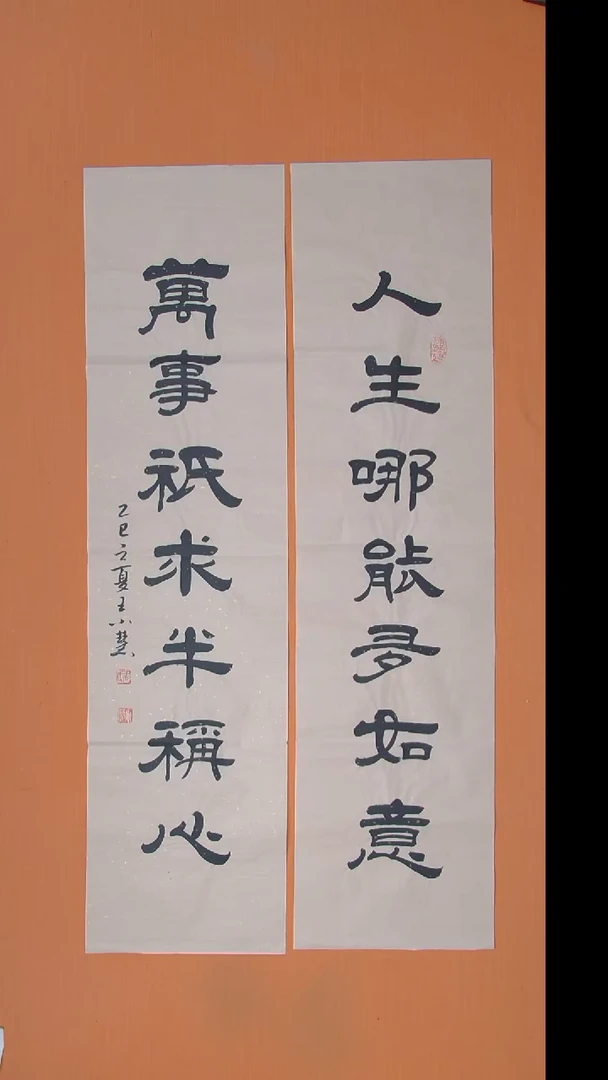 人生哪能多如意
萬事祇求半稱心
乙巳之夏王小慧